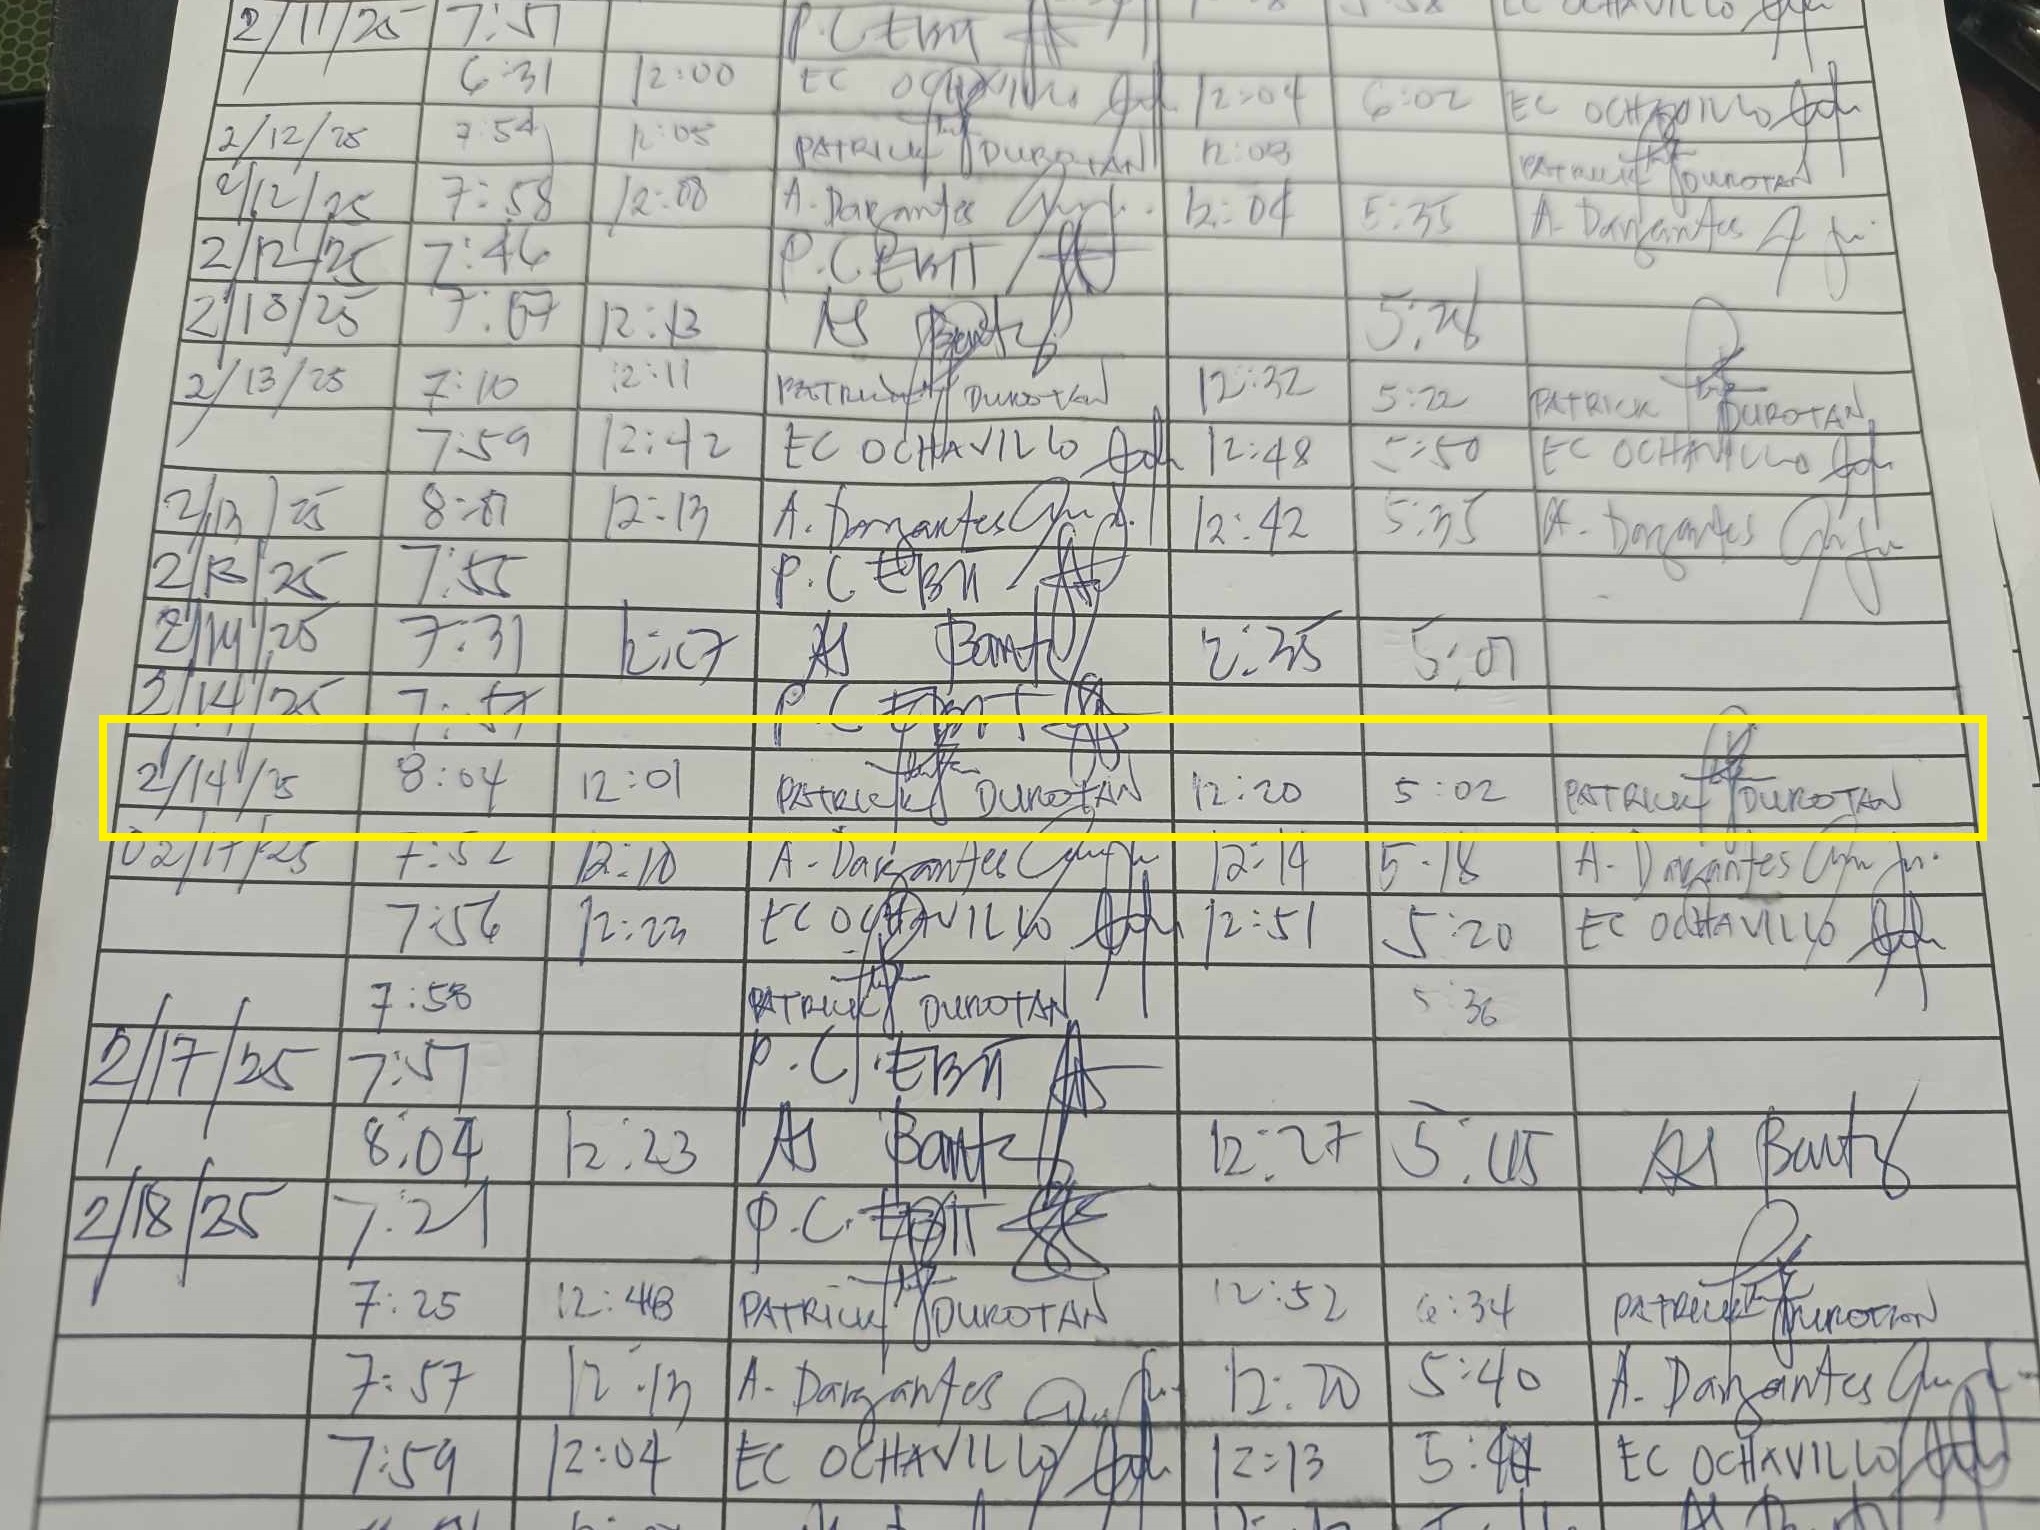 2/11/25 7:57 P.C EBIT 5:58 EC OCHAVILLO
6:31 12:00 EC OCHAVILLO 12:04 6:02 EC OCHAVILLO
2/12/25 7:54 12:05 PATRICK DUROTAN 12:08 PATRICK DUROTAN
2/12/25 7:58 12:00 A. Darzantes 12:04 5:35 A. Darzantes
2/12/25 7:46 P.C EBIT
2/13/25 12:13 AS
2/13/25 7:10 12:11 PATRICK DUROTAN 12:32 5:22 PATRICK DUROTAN
7:59 12:42 EC OCHAVILLO 12:48 5:50 EC OCHAVILLO
2/13/25 12:13 A. Darzantes 12:42 5:35 A. Darzantes
2/13/25 7:55 P.C EBIT
2/14/25 7:31 12:07 AS 12:35 5:01
2/14/25 P.C EBIT
2/14/25 8:04 12:01 PATRICK DUROTAN 12:20 5:02 PATRICK DUROTAN
02/17/25 7:52 12:10 A. Darzantes 12:14 5:18 A. Darzantes
7:56 12:23 EC OCHAVILLO 12:51 5:20 EC OCHAVILLO
7:58 PATRICK DUROTAN 5:36
2/17/25 7:57 P.C. EBIT
8:04 12:23 AS 12:27 5:45 AS
2/18/25 7:21 P.C. EBIT
7:25 12:48 PATRICK DUROTAN 12:52 6:34 PATRICK DUROTAN
7:57 12:13 A. Darzantes 12:20 5:40 A. Darzantes
7:59 12:04 EC OCHAVILLO 12:13 EC OCHAVILLO